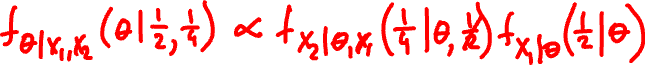 f_{θ|X₁,X₂}(θ|1/2,1/4) ∝ f_{X₂|θ,X₁}(1/4|θ,1/2) f_{X₁|θ}(1/2|θ)